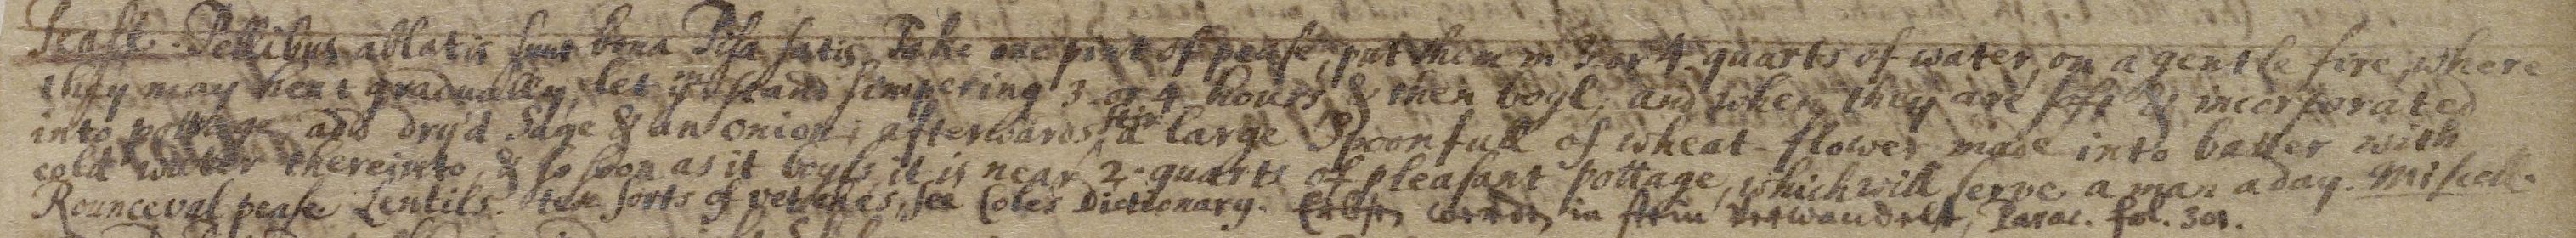 Pease. Pellibus ablatis sunt bona Pisa satis. Take one pint of pease, put them in 3 or 4 quarts of water, on a gentle fire, where
they may heat gradually, let ym stand simpering 3 or 4 hours & then boyl, and when they are soft & incorporated
into pottage, add dry'd Sage & an onion; afterwards stir a large Spoonfull of wheat-flower made into batter with
cold water thereinto, & so soon as it boyls, it is near 2 quarts of pleasant pottage, which will serve a man a day. Miscell.
Rounceval pease Lentils. two sorts of vetches, see Coles Dictionary. Erbsen werden in stein verwandelt, Parac. fol. 301.